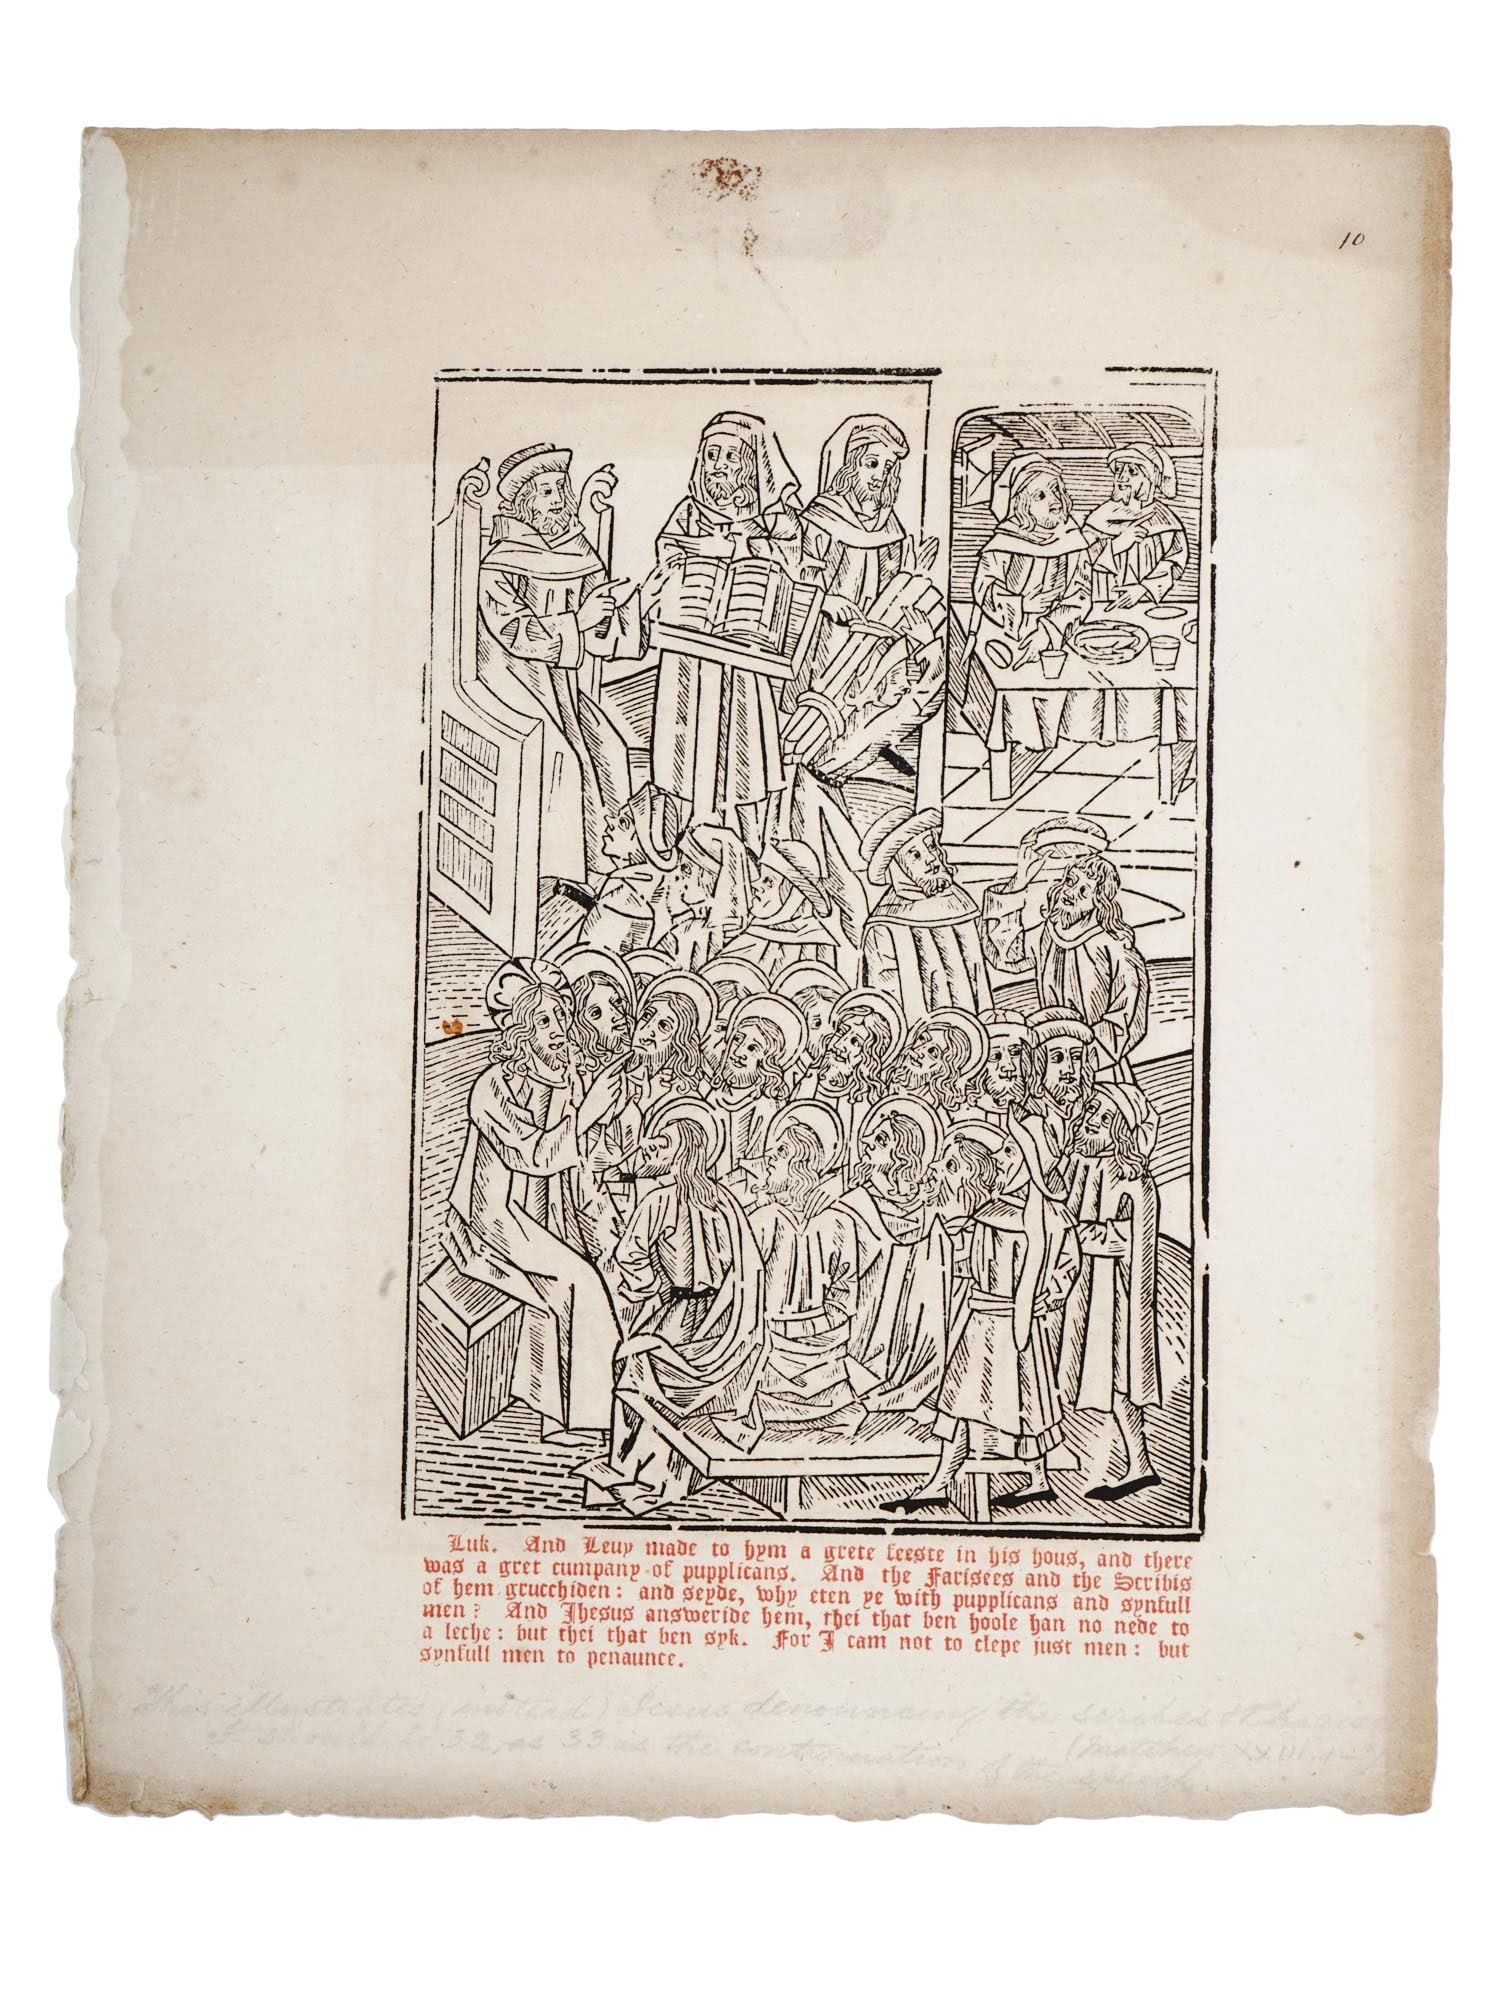 10
Luk. And Leuy made to hym a grete feeste in his hous, and there
was a gret cumpany of pupplicans. And the Farisees and the Scribis
of hem grucchiden: and seyde, why eten ye with pupplicans and synfull
men? And Jhesus answeride hem, thei that ben hoole han no nede to
a leche: but thei that ben syk. For I cam not to clepe just men: but
synfull men to penaunce.
This illustrates (instead) Jesus denouncing the scribes &
It should be 32, as 33 is the continuation (Matthew XXIII.
of the speech